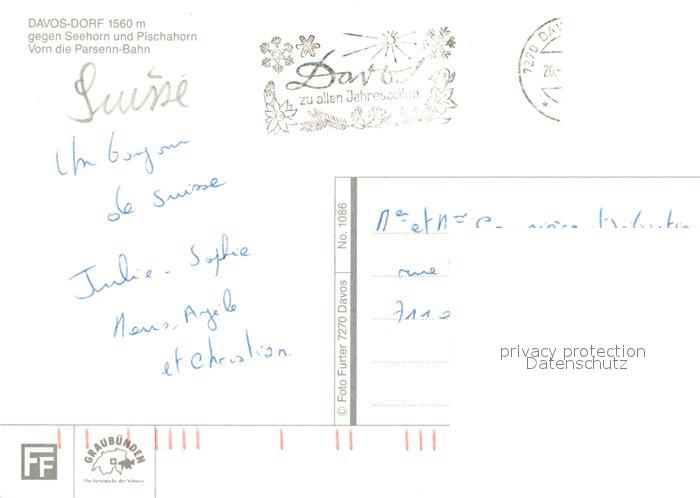 DAVOS-DORF 1560 m
gegen Seehorn und Pischahorn
Vorn die Parsenn-Bahn
Davos
zu allen Jahreszeiten
7270 DAV
26.-
Suisse
Un bonjour
de Suisse
Julie - Sophie
et Christian.
No. 1086
© Foto Furter 7270 Davos
et
rue
privacy protection
Datenschutz
FF
GRAUBÜNDEN
Die Ferienecke der Schweiz